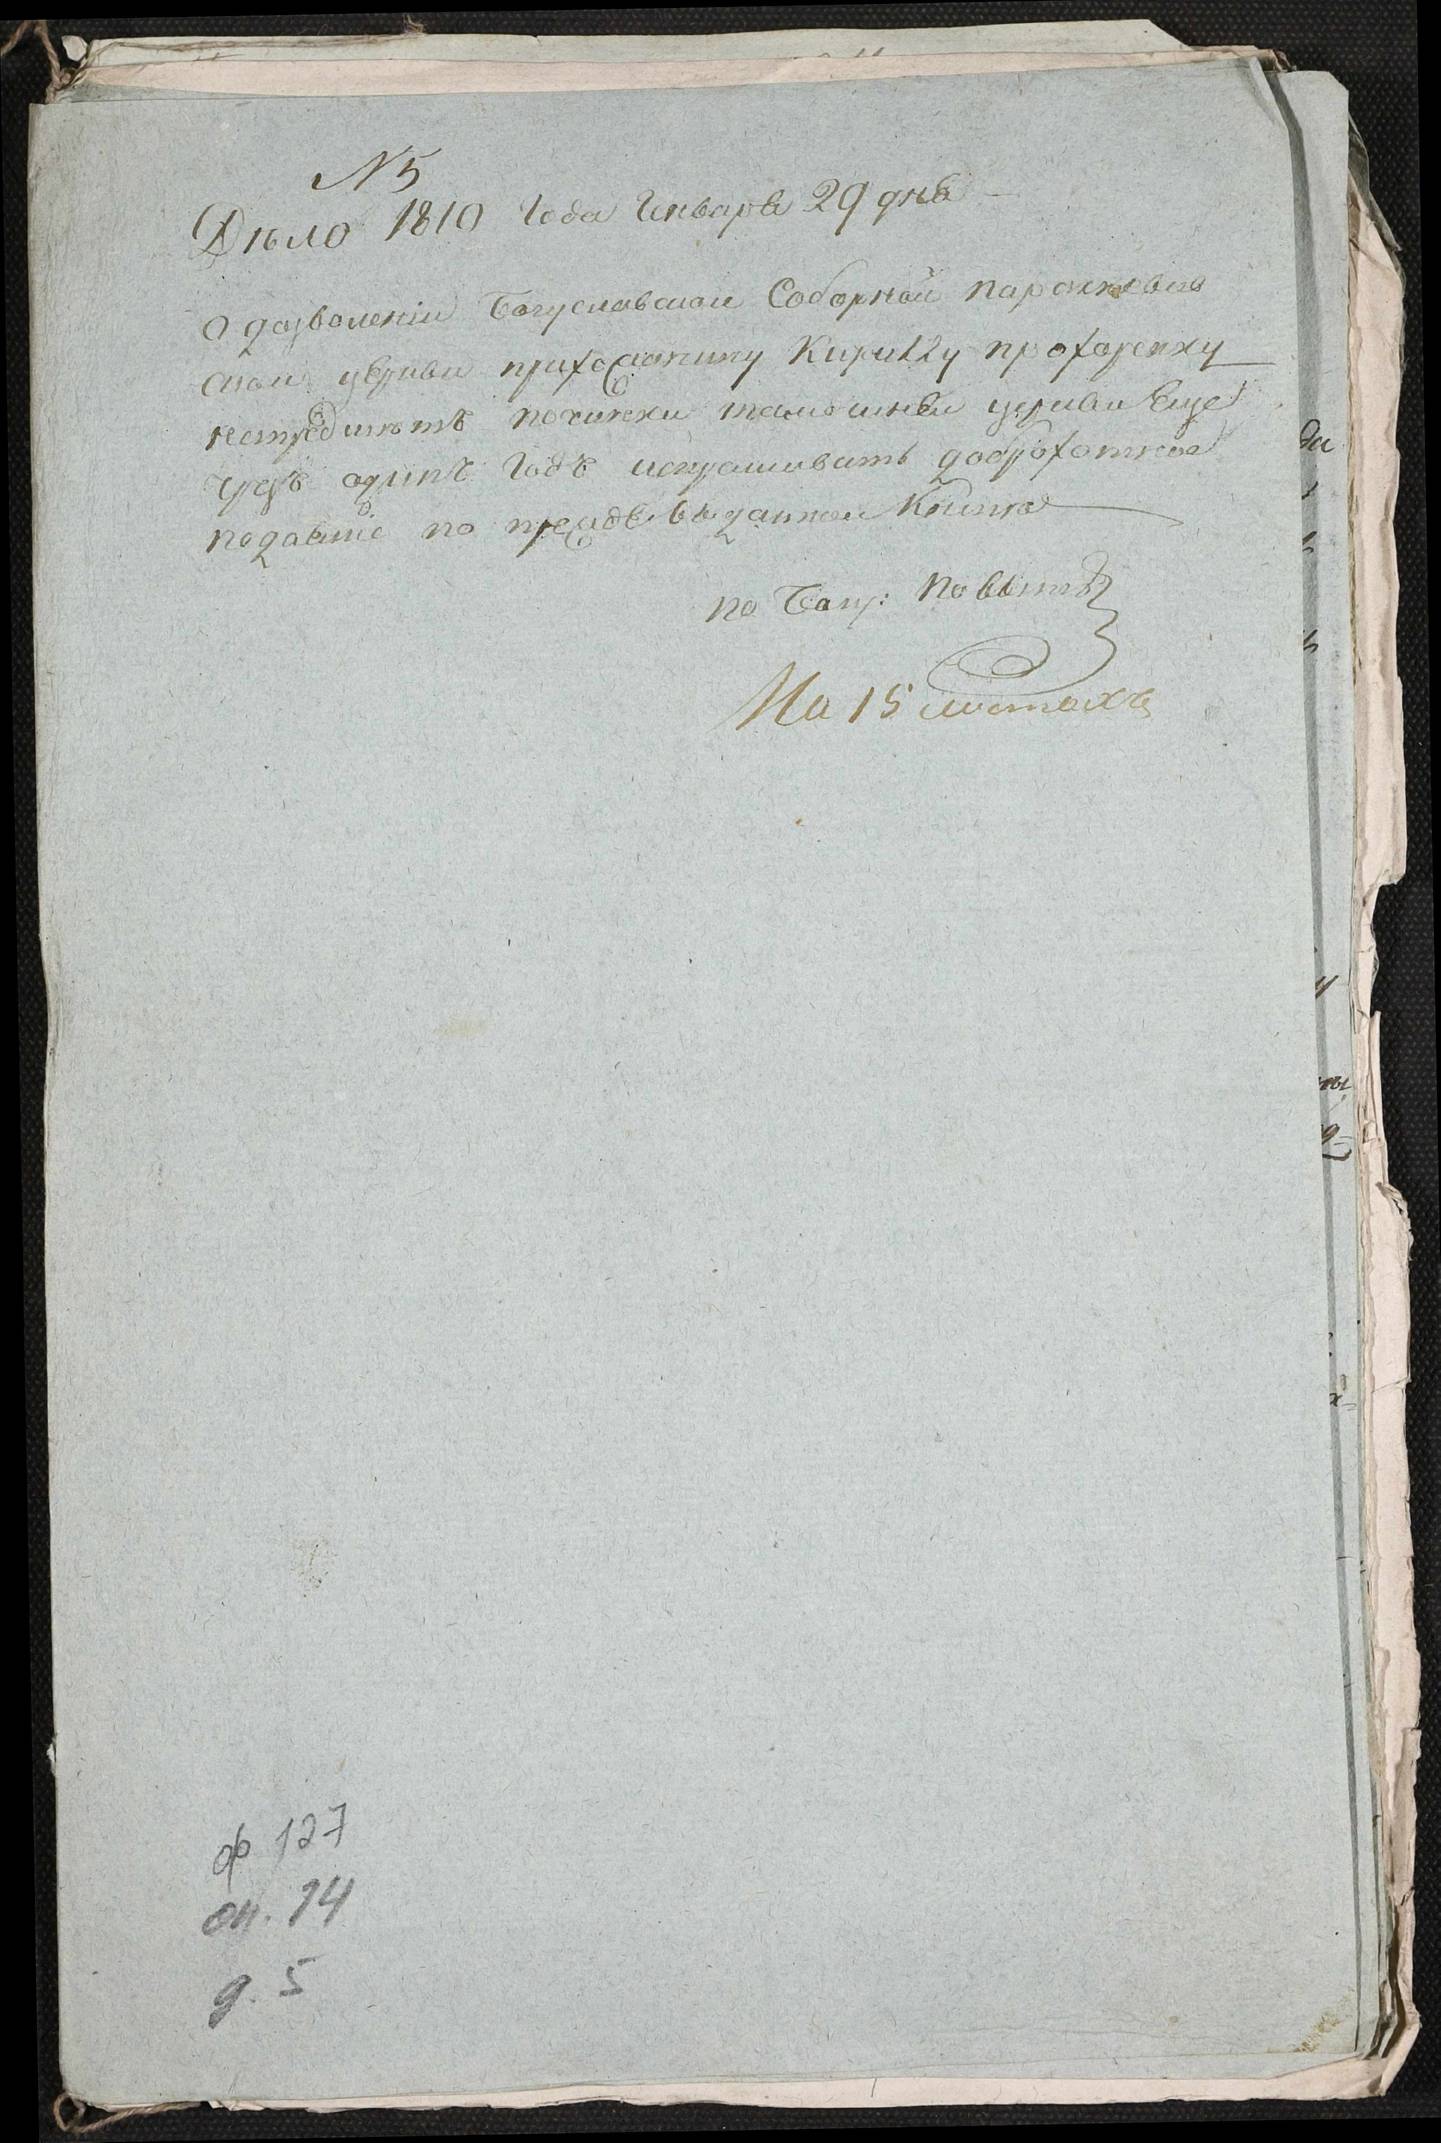 N 5
Дѣло 1810 Года Генваря 29 дня
О дозволеніи Богуславской Соборной параскевиев
ской церкви прихожанину Кирилу прохоренку
починки тамошней церкви Еще
чрезъ одинъ Годъ испрашивать доброхотное
подаяніе по преждѣ выданной Книге
По Богу: повытью
На 15 листахъ
ф 127
оп. 14
д. 5